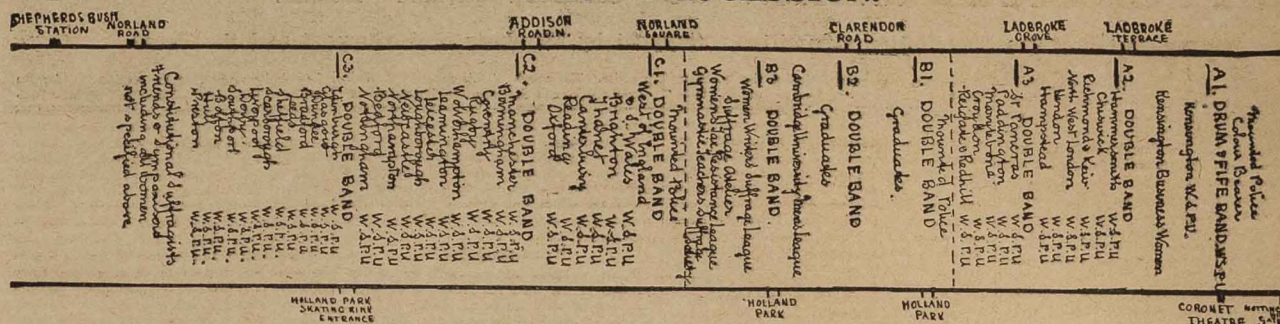 SHEPHERDS BUSH
STATION
NORLAND
ROAD
ADDISON
ROAD. N.
NORLAND
SQUARE
CLARENDON
ROAD
LADBROKE
GROVE
LADBROKE
TERRACE
Mounted Police
Colour Bearer
A1. DRUM & FIFE BAND. W.S.P.U.
Kensington. W.S.P.U.
Kensington Business Women
A2. DOUBLE BAND
Hammersmith W.S.P.U
Chiswick W.S.P.U
Richmond & Kew W.S.P.U
North West London W.S.P.U
Hendon W.S.P.U
Hampstead W.S.P.U
A3 DOUBLE BAND
St Pancras W.S.P.U
Paddington W.S.P.U
Marylebone W.S.P.U
Croydon W.S.P.U
Reigate & Redhill W.S.P.U
Mounted Police
B1. DOUBLE BAND
Graduates.
B2. DOUBLE BAND
Graduates
Cambridge University Mens League
B3 DOUBLE BAND.
Women Writers Suffrage League
Suffrage Atelier
Women's Tax Resistance League
Gymnastic Teachers Suffrage Society
Mounted Police
C1. DOUBLE BAND
West of England W.S.P.U
& S. Wales W.S.P.U
Brighton W.S.P.U
Thanet W.S.P.U
Canterbury W.S.P.U
Reading W.S.P.U
Oxford W.S.P.U
C2. DOUBLE BAND.
Manchester W.S.P.U
Birmingham W.S.P.U
Coventry W.S.P.U
Rugby W.S.P.U
Wolverhampton W.S.P.U
Leamington W.S.P.U
Leicester W.S.P.U
Loughborough W.S.P.U
Newcastle W.S.P.U
Northampton W.S.P.U
Bedford W.S.P.U
Nottingham W.S.P.U
C3. DOUBLE BAND
Edinburgh W.S.P.U
Glasgow W.S.P.U
Dundee W.S.P.U
Bradford W.S.P.U
Leeds W.S.P.U
Sheffield W.S.P.U
Scarborough W.S.P.U
Liverpool W.S.P.U.
Derby W.S.P.U.
Southport W.S.P.U.
Bolton W.S.P.U.
Hull W.S.P.U.
Preston W.S.P.U.
Constitutional Suffragists
Friends & Sympathisers
including all women
not specified above
HOLLAND PARK
SKATING RINK
ENTRANCE
HOLLAND
PARK
HOLLAND
PARK
CORONET
THEATRE